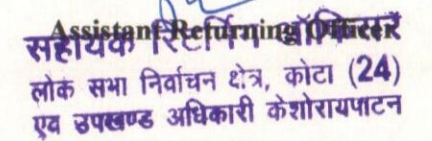 Assistant Returning Officer
सहायक रिटर्निंग ऑफिसर
लोक सभा निर्वाचन क्षेत्र, कोटा (24)
एव उपखण्ड अधिकारी केशोरायपाटन